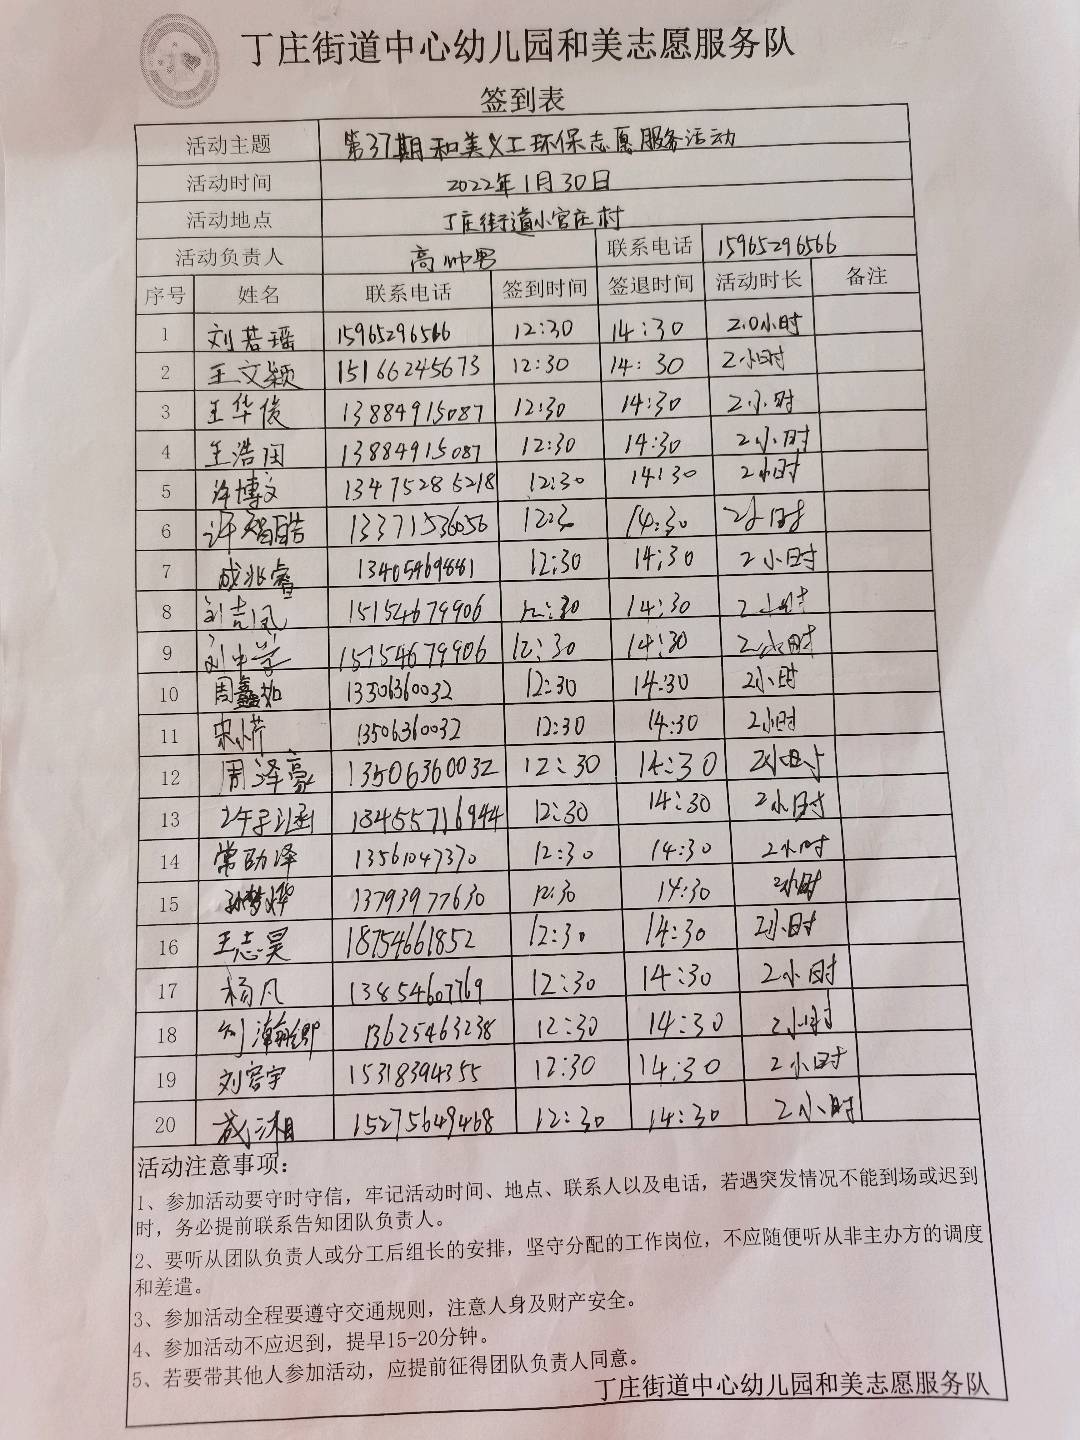 丁庄街道中心幼儿园和美志愿服务队
签到表
活动主题 第37期和美义工环保志愿服务活动
活动时间 2022年1月30日
活动地点 丁庄街道小官庄村
活动负责人 高帅男 联系电话 15965296566
序号 姓名 联系电话 签到时间 签退时间 活动时长 备注
1 刘若瑶 15965296566 12:30 14:30 2.0小时
2 王文颖 15166245673 12:30 14:30 2小时
3 王华俊 13884915087 12:30 14:30 2小时
4 王浩闰 13884915087 12:30 14:30 2小时
5 许博文 13475285218 12:30 14:30 2小时
6 13371536056 12:30 14:30 2小时
7 成兆睿 13405469881 12:30 14:30 2小时
8 刘吉凤 15154679906 12:30 14:30 2小时
9 15154679906 12:30 14:30 2小时
10 周鑫如 13506360032 12:30 14:30 2小时
11 宋小芹 13506360032 12:30 14:30 2小时
12 周泽豪 13506360032 12:30 14:30 2小时
13 许子涵 18455716944 12:30 14:30 2小时
14 常勋泽 13561047370 12:30 14:30 2小时
15 孙梦烨 13793977630 12:30 14:30 2小时
16 王志昊 18754661852 12:30 14:30 2小时
17 杨凡 13854607769 12:30 14:30 2小时
18 刘瀚卿 13625463238 12:30 14:30 2小时
19 刘容宇 15318394355 12:30 14:30 2小时
20 15275649468 12:30 14:30 2小时
活动注意事项：
1、参加活动要守时守信，牢记活动时间、地点、联系人以及电话，若遇突发情况不能到场或迟到
时，务必提前联系告知团队负责人。
2、要听从团队负责人或分工后组长的安排，坚守分配的工作岗位，不应随便听从非主办方的调度
和差遣。
3、参加活动全程要遵守交通规则，注意人身及财产安全。
4、参加活动不应迟到，提早15-20分钟。
5、若要带其他人参加活动，应提前征得团队负责人同意。
丁庄街道中心幼儿园和美志愿服务队